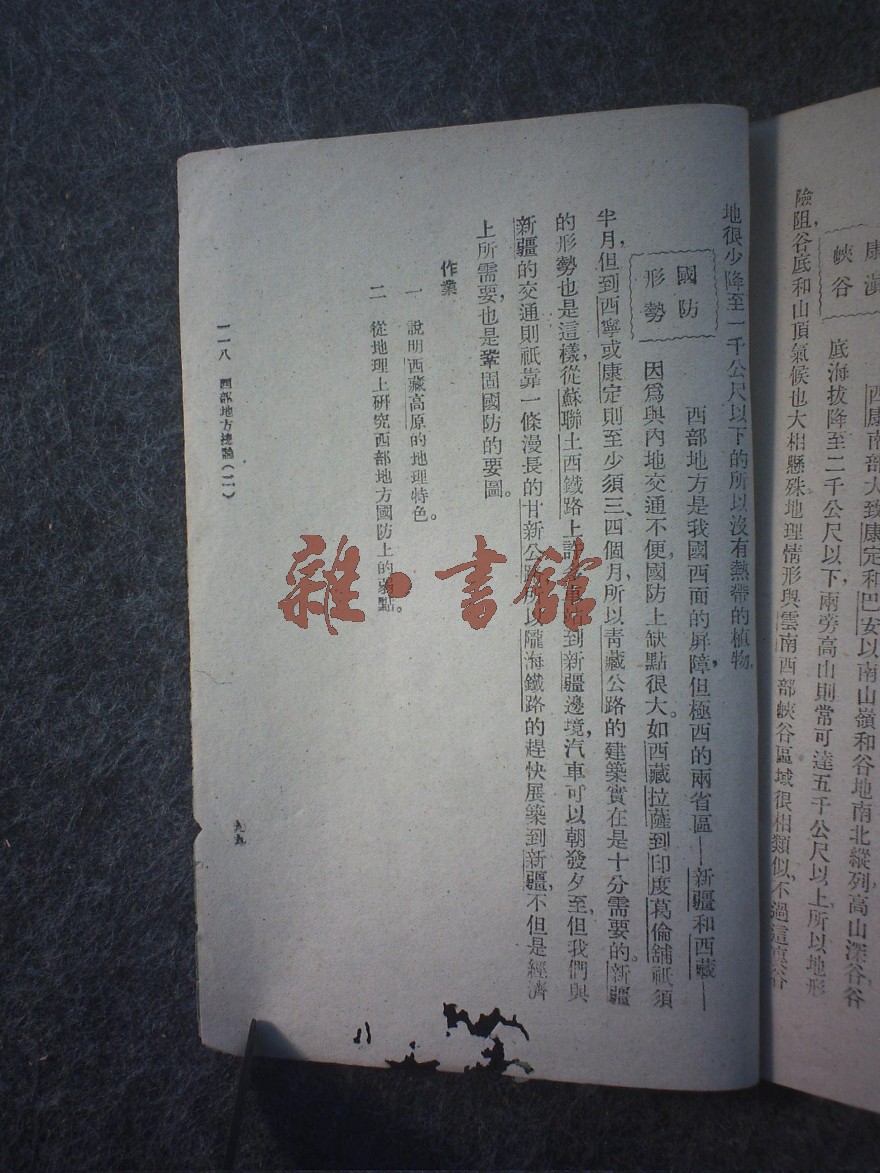 康滇
峽谷
西康南部大致康定和巴安以南山嶺和谷地南北縱列,高山深谷谷
底海拔降至二千公尺以下,兩旁高山則常可達五千公尺以上,所以地形
險阻,谷底和山頂氣候也大相懸殊地理情形與雲南西部峽谷區域很相類似,不過這裏谷
地很少降至一千公尺以下的所以沒有熱帶的植物,
國防
形勢
西部地方是我國西面的屏障,但極西的兩省區——新疆和西藏——
因爲與內地交通不便,國防上缺點很大。如西藏拉薩到印度葛倫舖祇須
半月,但到西寧或康定則至少須三、四個月,所以青藏公路的建築實在是十分需要的。新疆
的形勢也是這樣,從蘇聯土西鐵路上 到新疆邊境,汽車可以朝發夕至,但我們與
新疆的交通則祇靠一條漫長的甘新公路所以隴海鐵路的趕快展築到新疆,不但是經濟
上所需要,也是鞏固國防的要圖。
作業
一 說明西藏高原的地理特色。
二 從地理上研究西部地方國防上的弱點。
一一八 西部地方總論(二)
九九
雜·書館